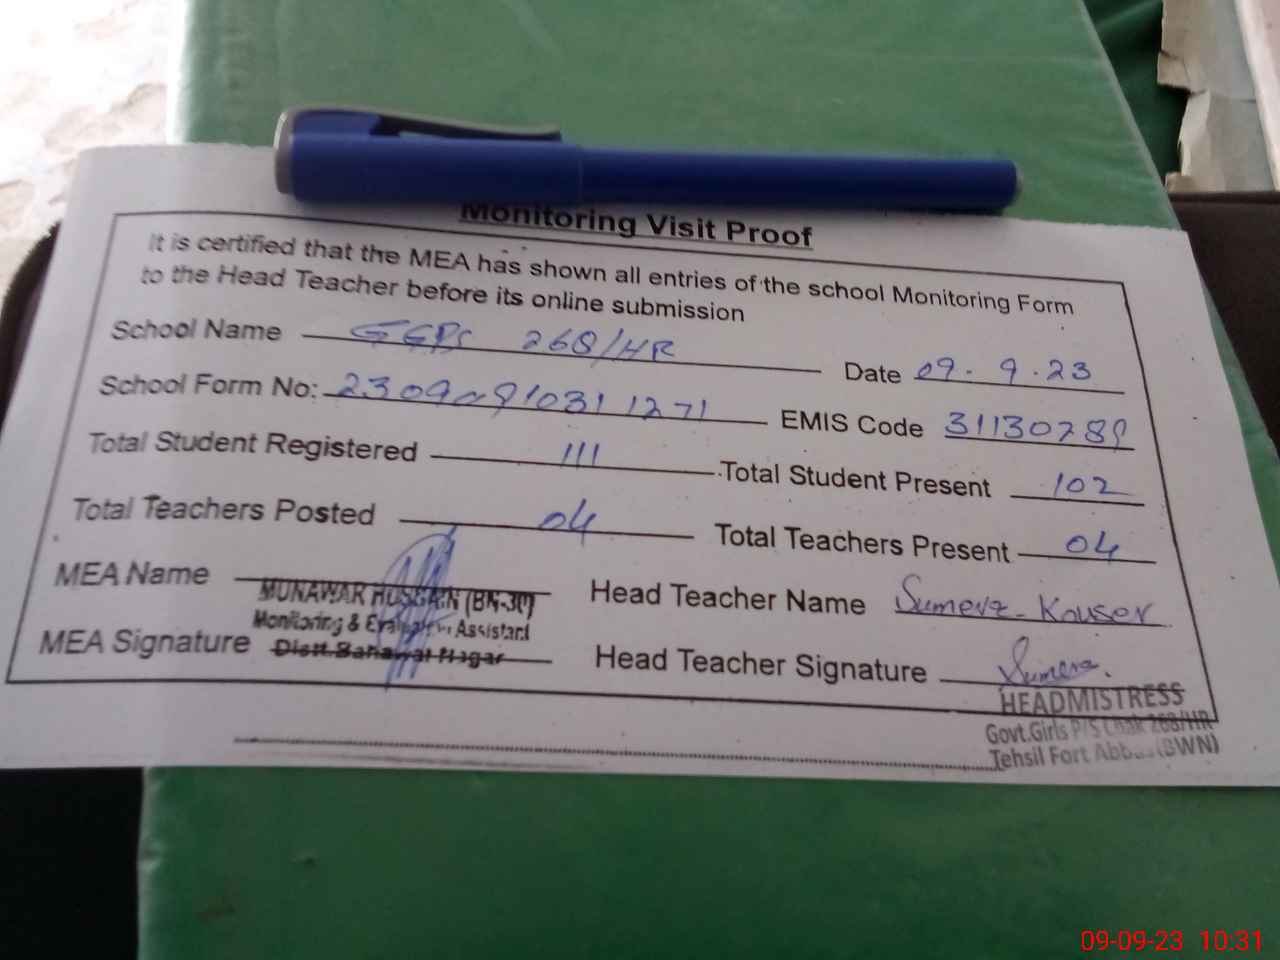 Monitoring Visit Proof
It is certified that the MEA has shown all entries of the school Monitoring Form
to the Head Teacher before its online submission
School Name GGPS 268/HR Date 09.9.23
School Form No: EMIS Code
Total Student Registered 111 Total Student Present 102
Total Teachers Posted 04 Total Teachers Present 04
MEA Name Head Teacher Name Sumera Kouser
MUNAWAR HUSSAIN (BN-30)
Monitoring & Evaluation Assistant
MEA Signature Distt. Bahawal Nagar Head Teacher Signature Sumera.
HEADMISTRESS
Govt.Girls P/S Chak 268/HR
Tehsil Fort Abbas (BWN)
09-09-23 10:31